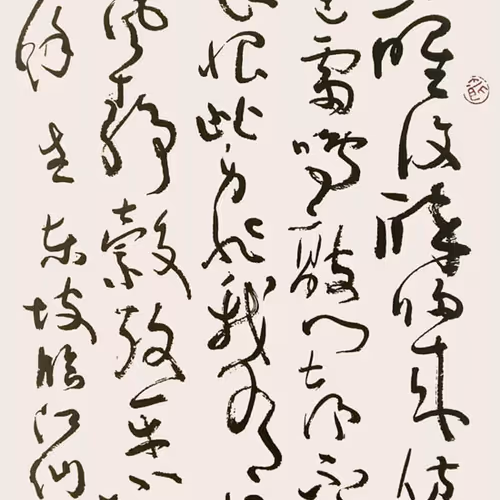 醒復醉归来
雷鸣敲门都不
恨此身非我有
风静縠纹平小
余生东坡临江仙